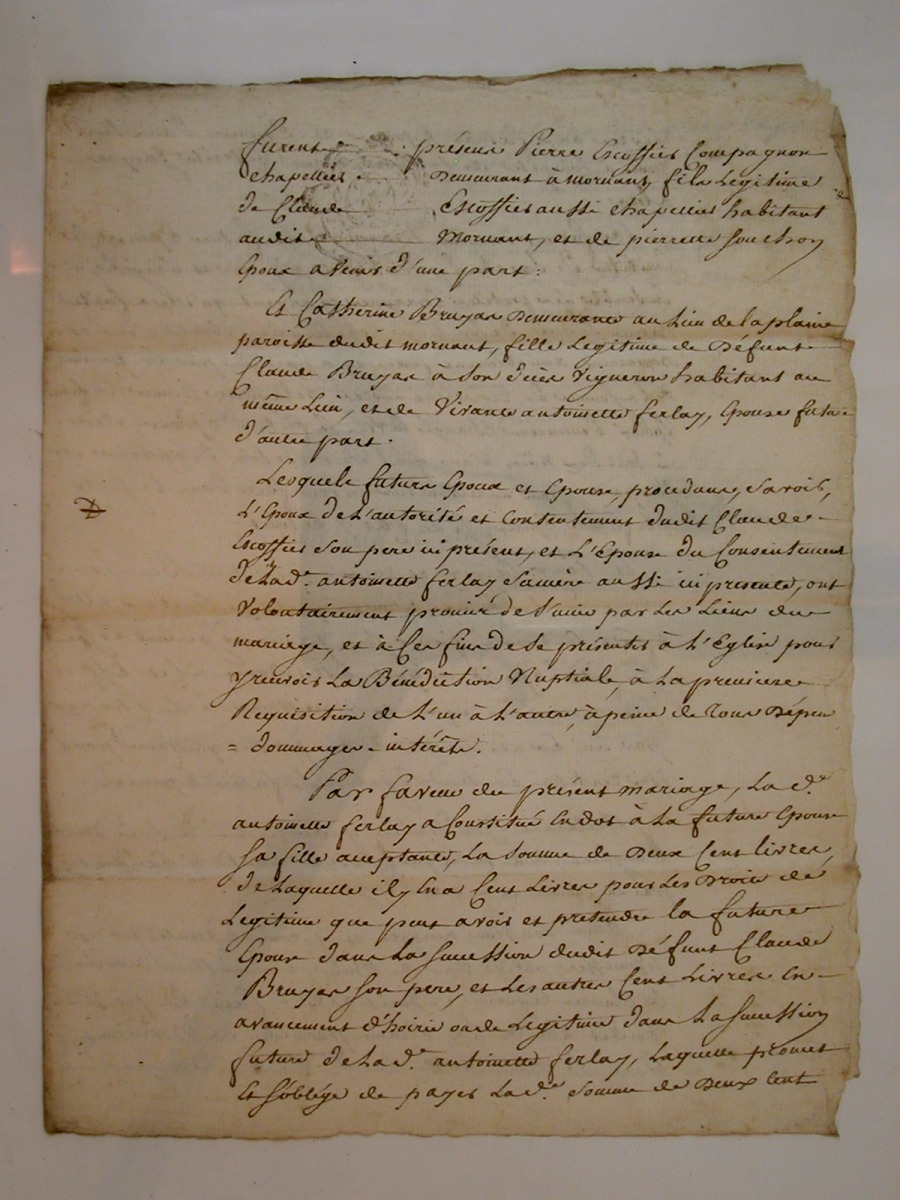 furent présens Pierre Escoffier Compagnon
chapellier Demeurant à mornant, fils Légitime
de Claude Escoffier aussi chapellier habitant
audit Mornant, et de pierrette souchon
Epoux avenir d'une part :
Et Catherine Bruyas Demeurante au Lieu de la plaine
paroisse dudit mornant, fille Legitime de Défunt
Claude Bruyas à Son décès Vigneron habitant au
même Lieu, et de Vivante antoinette ferlay, Epouse future
d'autre part .
Lesquels futurs Epoux et Epouse, procedans, Savoir,
L'Epoux de L'autorité et Consentement dudit Claude
Escoffier Son pere ici présent, et L'Epouse du Consentement
de Lad.e antoinette ferlay Sa mère aussi ici presente, ont
Volontairement promis de S'unir par Les Liens du
mariage, et à Ces fins de Se présenter à L'Eglise pour
y recevoir La Bénédiction Nuptiale, à La premiere
Requisition de L'un à L'autre, à peine de Tous Dépens
= dommages-intérêts.
Par faveur du présent mariage, La d.e
antoinette ferlay a Constitué En dot à La future Epouse
Sa fille acceptante, La Somme de Deux Cent Livres,
de Laquelle il y En a Cent Livres pour Les Droits de
Legitime que peut avoir et prétendre la future
Epouse dans La succession dudit Défunt Claude
Bruyas son pere, et Les autres Cent Livres En
avancement d'hoirie ou de Legitime dans La succession
future de La d.e antoinette ferlay, Laquelle promet
Et s'oblige de payer Lad.e Somme de Deux Cent